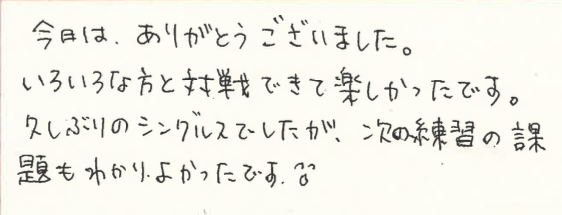 今日は、ありがとうございました。
いろいろな方と対戦できて楽しかったです。
久しぶりのシングルスでしたが、次の練習の課
題もわかり、よかったです。